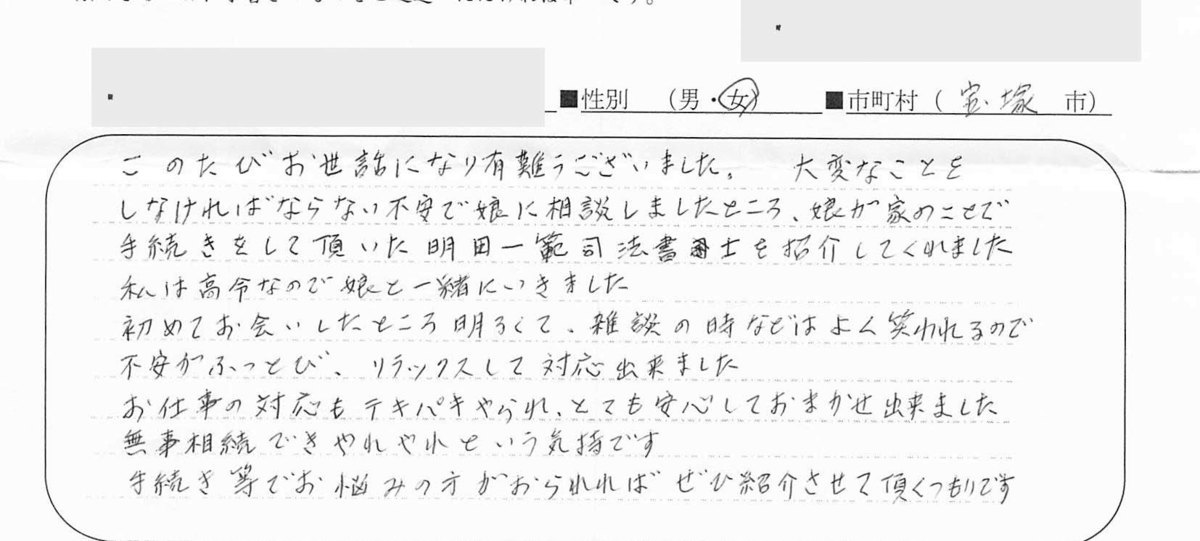 ■性別　（男・女）　■市町村（宝塚　市）
このたびお世話になり有難うございました。　大変なことを
しなければならない不安で娘に相談しましたところ、娘が家のことで
手続きをして頂いた明田一範司法書士を紹介してくれました
私は高令なので娘と一緒にいきました
初めてお会いしたところ明るくて、雑談の時などはよく笑われるので
不安がふっとび、リラックスして対応出来ました
お仕事の対応もテキパキやられ、とても安心しておまかせ出来ました
無事相続できやれやれという気持です
手続き等でお悩みの方がおられればぜひ紹介させて頂くつもりです